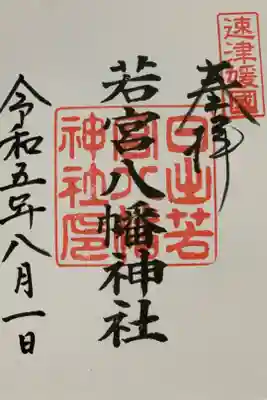 速津媛國
奉拝
若宮八幡神社
日出若
宮八幡
神社印
令和五年八月一日